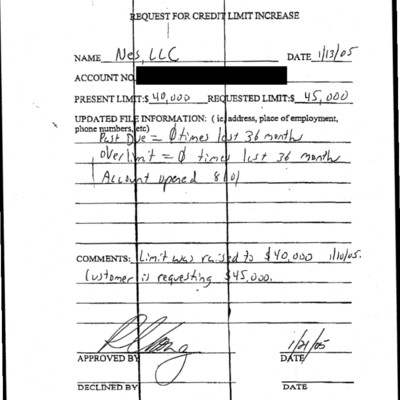 REQUEST FOR CREDIT LIMIT INCREASE
NAME Nes, LLC DATE 1/13/05
ACCOUNT NO.
PRESENT LIMIT:$ 40,000 REQUESTED LIMIT:$ 45,000
UPDATED FILE INFORMATION: ( ie, address, place of employment,
phone numbers, etc)
Past Due = 0 times last 36 months
overlimit = 0 times last 36 months
Account opened 8/01
COMMENTS: Limit was raised to $40,000 1/10/05.
Customer is requesting $45,000.
APPROVED BY 1/21/05 DATE
DECLINED BY DATE